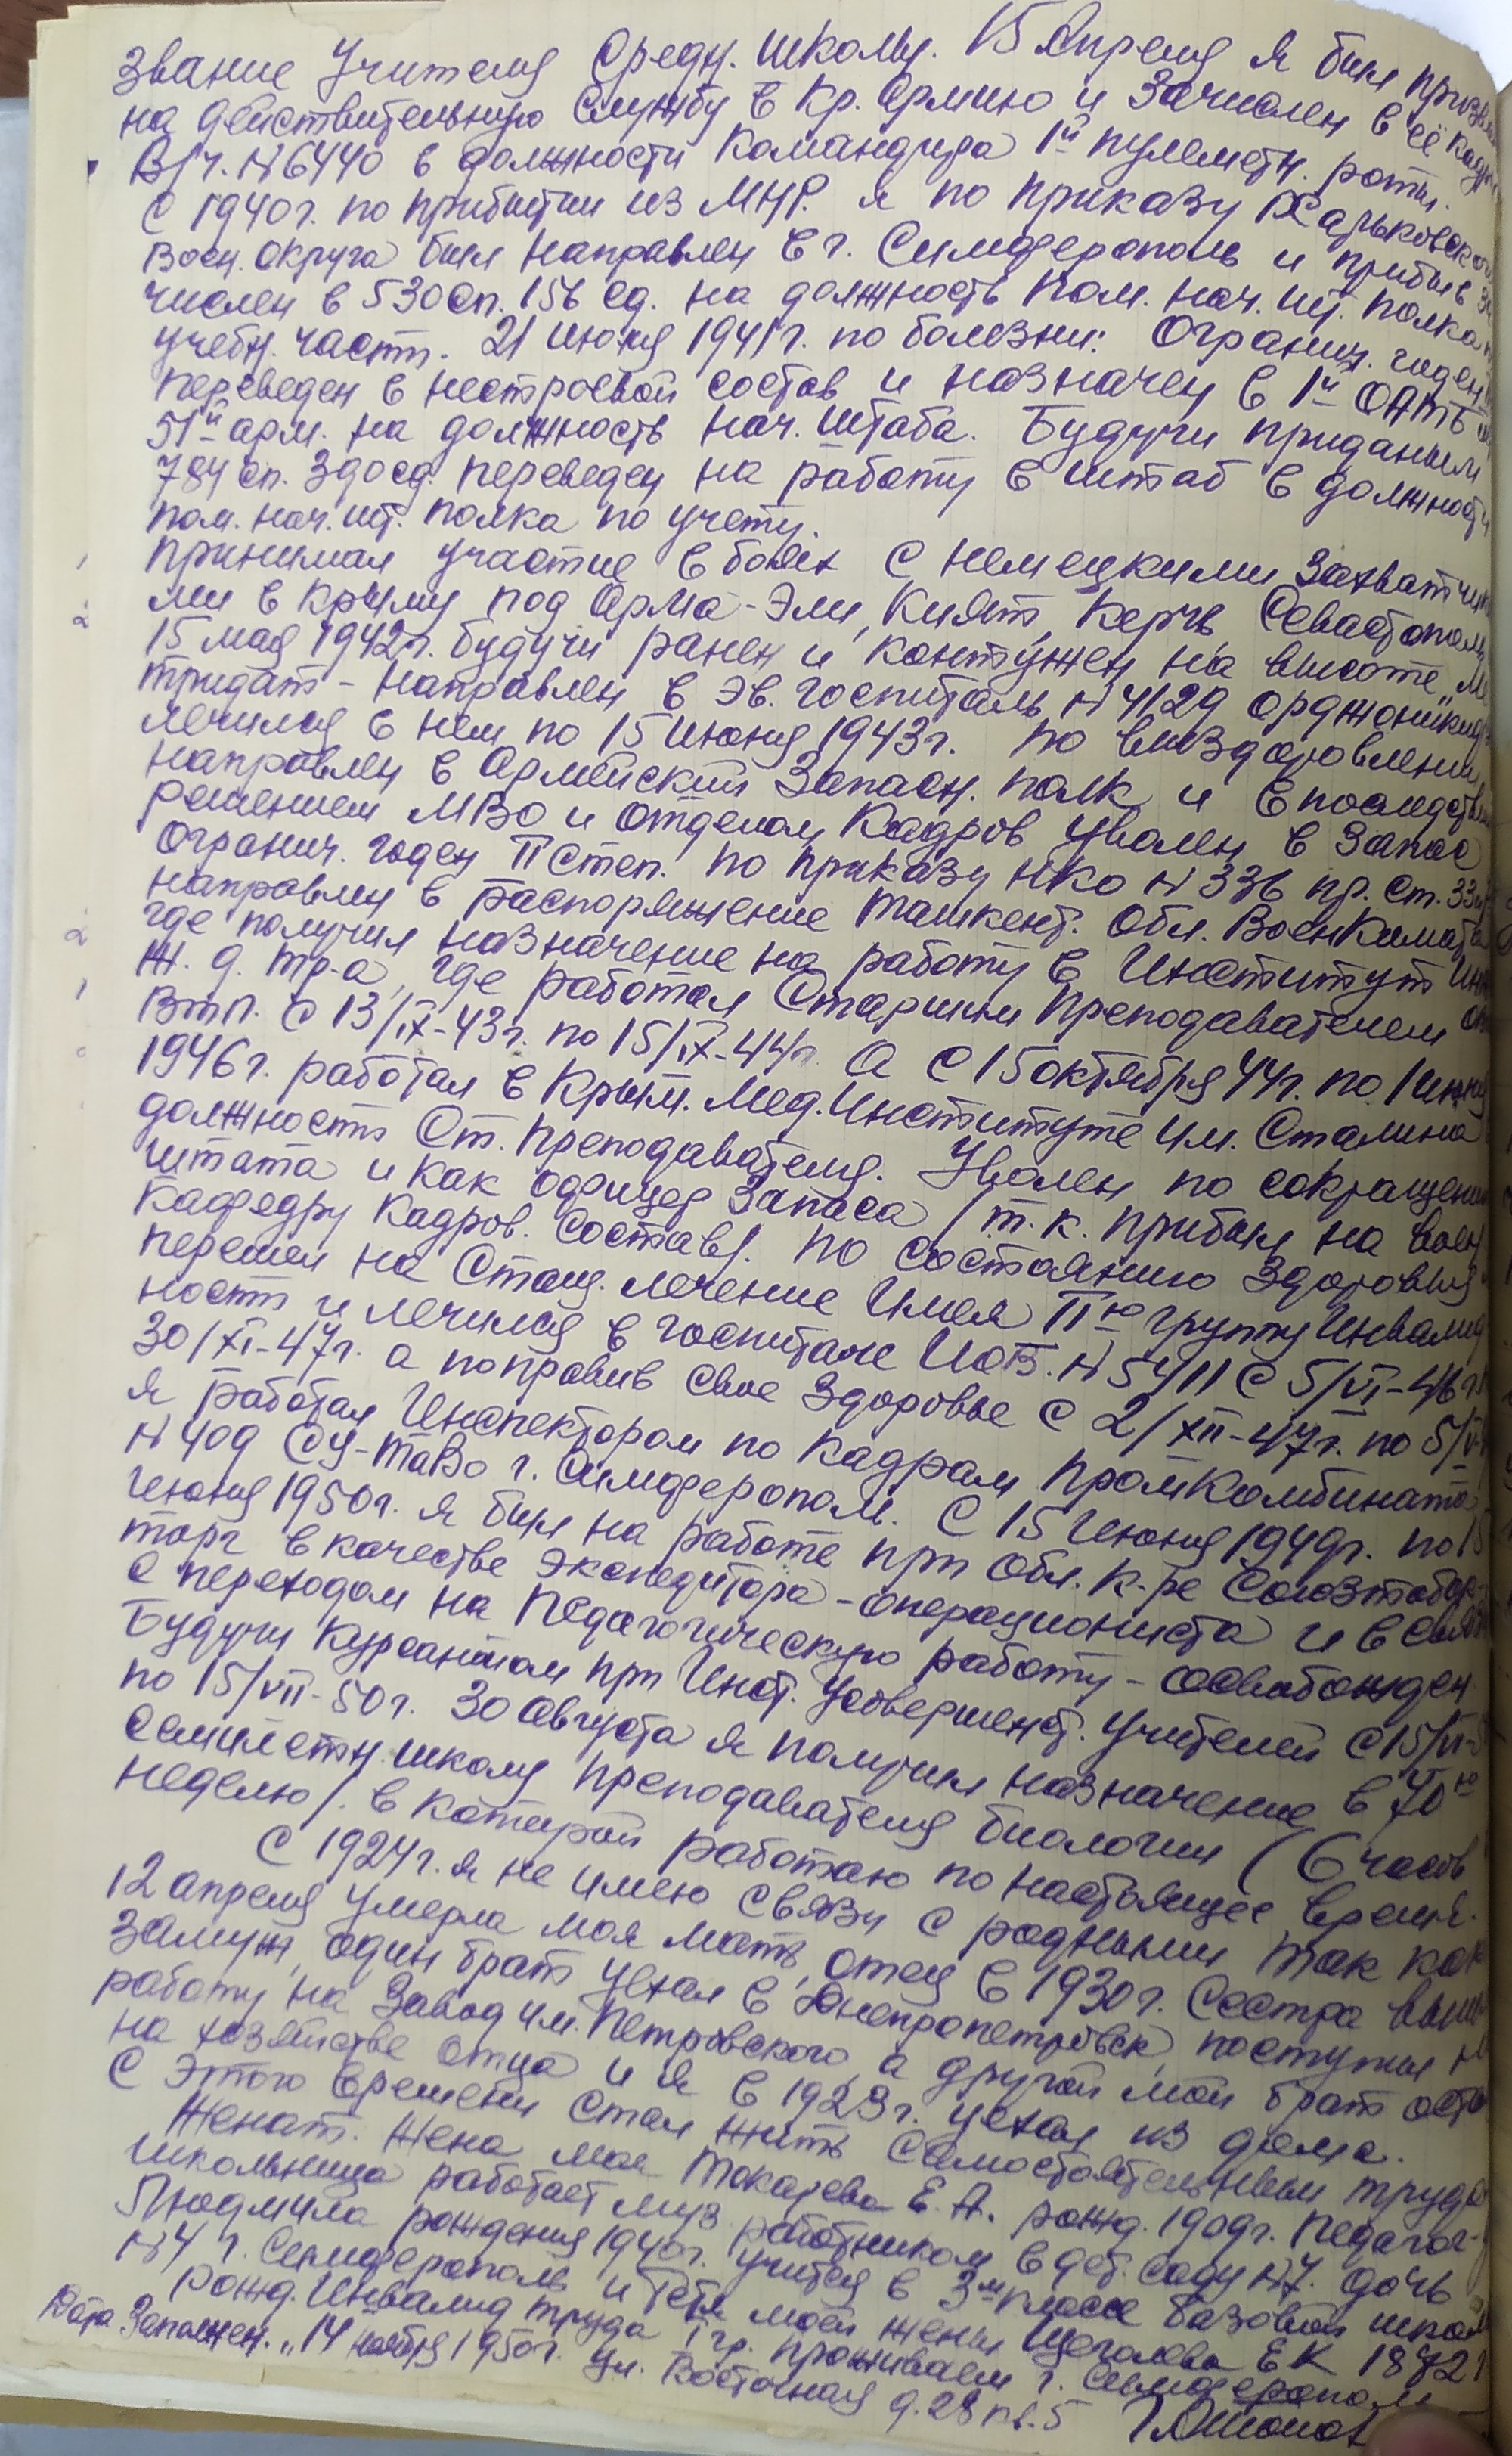 звание Учителя Средн. школы. 15 Апреля я был призван
на действительную службу в Кр. Армию и зачислен в её кадры
В/ч. №6440 в должности командира 1й пулеметн. роты.
С 1940г. по прибытии из МНР. я по приказу Харьковского
Воен. округа был направлен в г. Симферополь и прибыв за
числен в 530сп. 156 сд. на должность Пом. нач. шт. полка
учебн. часть. 21 июня 1941г. по болезни: Огранич. годен
переведен в нестроевой состав и назначен в 1й ОАТБ
51й арм. на должность нач. штаба. Будучи приданым
784 сп. 390сд. переведен на работу в штаб в должность
пом. нач. шт. полка по учету.
Принимал участие в боях с немецкими захватчика
ми в Крыму под Арма-Эли, Кият, Керчь, Севастополь
15 мая 1942г. будучи ранен и контужен на высоте
- направлен в эв. госпиталь №4129 Орджоникидзе
лечился в нем по 15 Июня 1943г. По выздоровлении
направлен в Армейский Запасн. полк, и впоследствии
решением МВО и отделом Кадров уволен в запас
огранич. годен II степ. по приказу НКО №336 пр. ст. 33
направлен в распоряжение Ташкент. Обл. Военкомата
где получил назначение на работу в Институт Инж
Ж. д. тр-а, где работал Старшим Преподавателем
ВТП. с 13/IX-43г. по 15/IX-44г. А с 15 октября 44г. по 1 Июня
1946г. работал в Крым. Мед. Институте им. Сталина
должность Ст. Преподавателя. Уволен по сокращению
штата и как офицер запаса /т.к. прибыл на воен
Кафедру Кадров. Состав/. По состоянию здоровья
перешел на Стац. лечение имея IIю группу Инвалид
ности и лечился в госпитале ИОВ. №5411 с 5/VI-46г.
30/XI-47г. а поправив свое здоровье с 2/XII-47г. по 5/V
я работал Инспектором по кадрам Промкомбината
№409 СУ-ТаВО г. Симферополь. С 15 Июня 1949г. по 15
Июня 1950г. я был на работе при Обл. К-ре Союзтабак-
торг в качестве экспедитора-операциониста и в связи
с переходом на Педагогическую работу - освобожден.
Будучи Курсантом при Инст. Усовершенст. Учителей с 15/VI-
по 15/VII-50г. 30 Августа я получил назначение в 70ю
Семилетн. школу преподавателя биологии (6 часов
неделю/. в которой работаю по настоящее время.
С 1924г. я не имею связи с родными так как
12 апреля умерла моя мать, отец в 1930г. Сестра вышла
замуж, один брат уехал в Днепропетровск, поступил на
работу на Завод им. Петровского, а другой мой брат оста
на хозяйстве отца и я в 1923г. уехал из дома.
С этого времени стал жить самостоятельным трудом
Женат. Жена моя Токарева Е. А. рожд. 1909г. Педагог-
школьница работает муз. работником в дет. саду №7. Дочь
Людмила рождения 1940г. учится в 3м классе базовой школы
№4 г. Симферополь и тетя моей жены Щеголева Е К 1882г
рожд. Инвалид труда I гр. Проживаем г. Симферополь
Дата Заполнен. "14 ноября 1950г. ул. Восточная д. 28 кв. 5